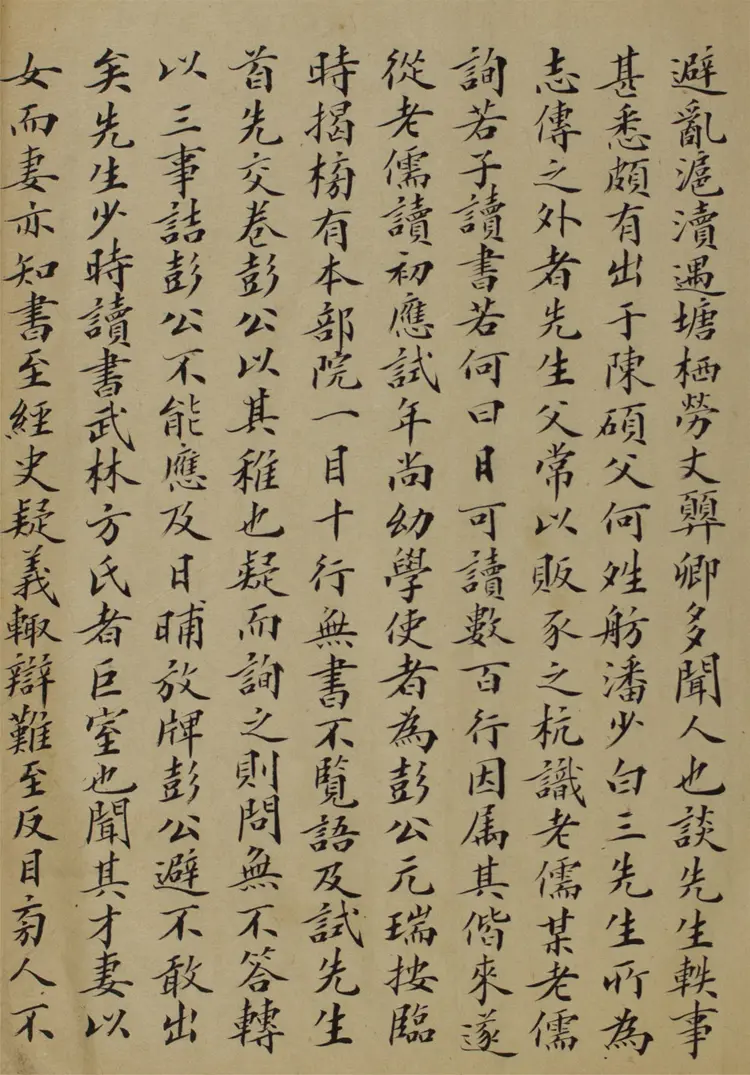 避亂滬瀆遇塘栖勞丈巽卿多聞人也談先生軼事
甚悉頗有出于陳碩父何姓舫潘少白三先生所為
志傳之外者先生父常以販豕之杭識老儒某老儒
詢若子讀書若何曰日可讀數百行因属其偕來遂
從老儒讀初應試年尚幼學使者為彭公元瑞按臨
時揭榜有本部院一目十行無書不覽語及試先生
首先交卷彭公以其稚也疑而詢之則問無不答轉
以三事詰彭公不能應及日晡放牌彭公避不敢出
矣先生少時讀書武林方氏者巨室也聞其才妻以
女而妻亦知書至經史疑義輙辯難至反目旁人不